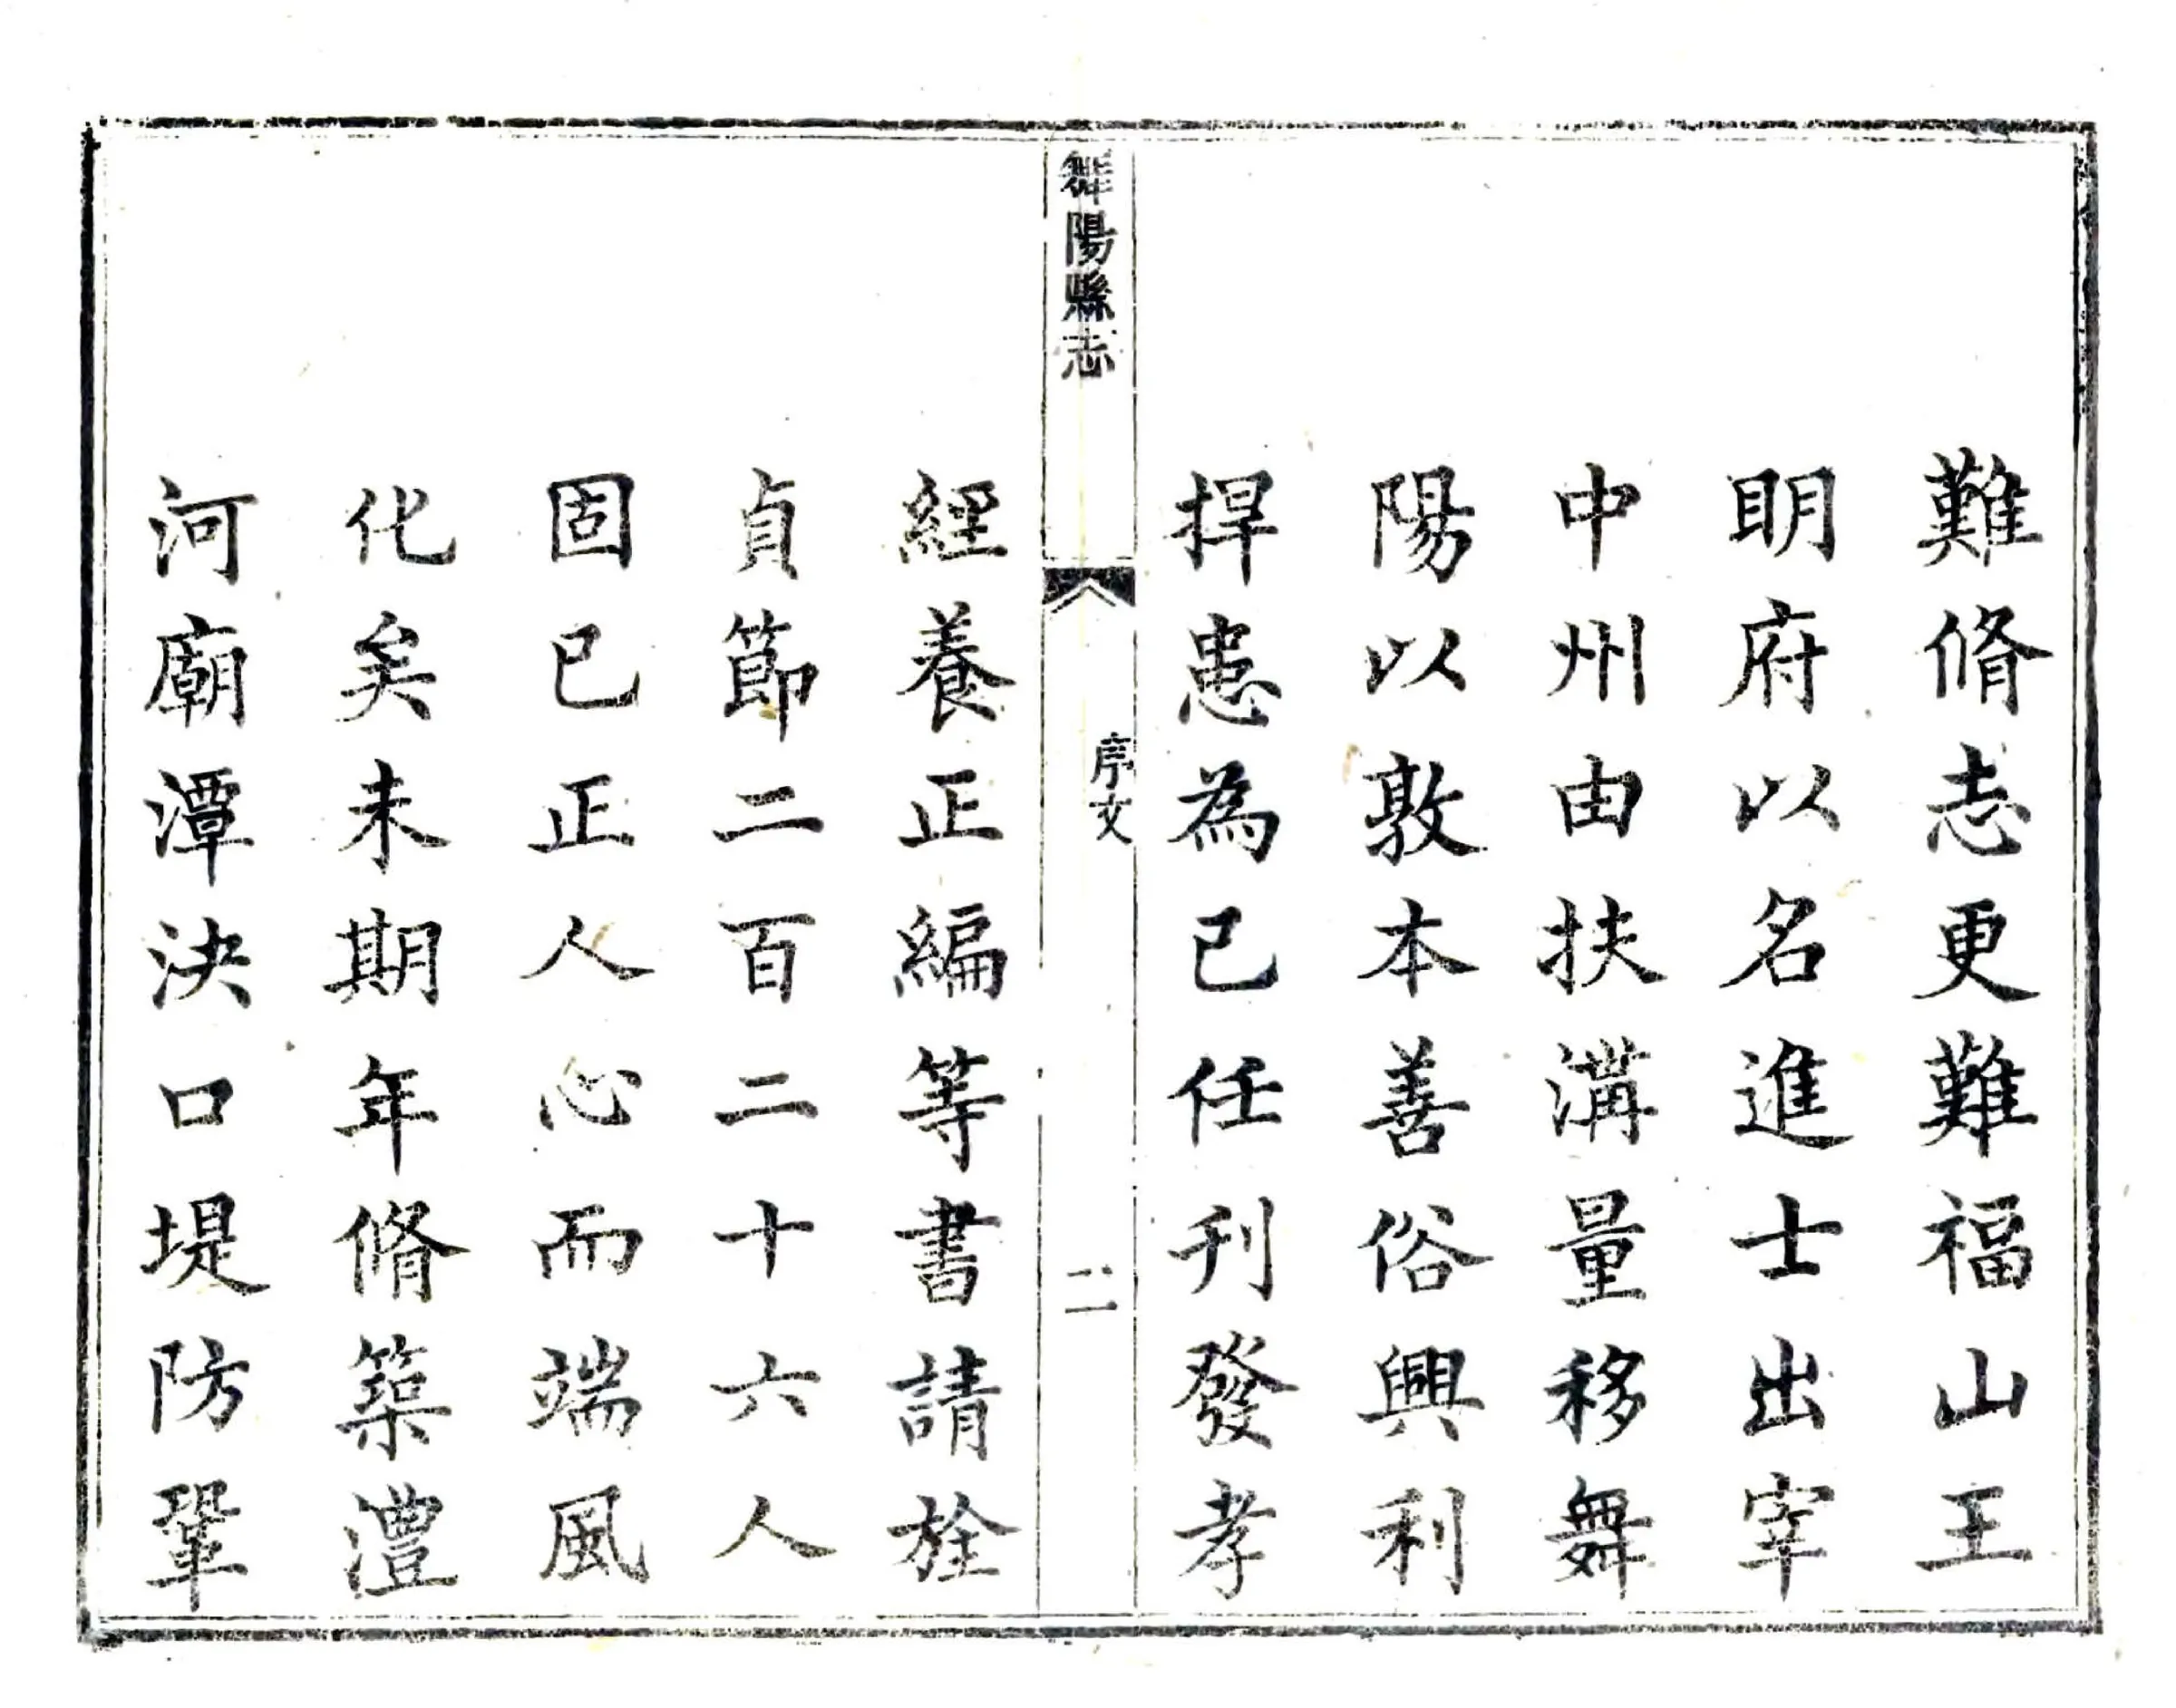 難脩志更難福山王
明府以名進士出宰
中州由扶溝量移舞
陽以敦本善俗興利
捍患為己任刊發孝
舞陽縣志
序文
二
經養正編等書請旌
貞節二百二十六人
固已正人心而端風
化矣未期年脩築澧
河廟潭決口堤防鞏